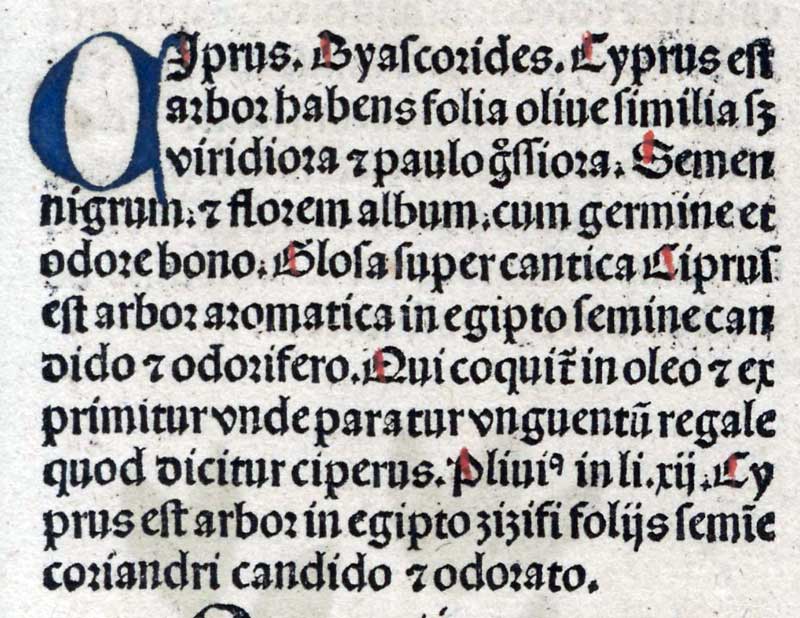 CIprus. Dyaſcorides. Cyprus eſt
arbor habens folia oliue ſimilia ſꝫ
viridiora ⁊ paulo gͦſſiora. Semen
nigrum. ⁊ florem album. cum germine et
odore bono. Gloſa ſuper cantica Ciprus
eſt arbor aromatica in egipto ſemine can
dido ⁊ odorifero. Qui coquit̃ in oleo ⁊ ex
primitur vnde paratur vnguentū regale
quod dicitur ciperus. Pliuiꝰ in li. xij. Cy
prus eſt arbor in egipto ziziſi folijs ſemīe
coriandri candido ⁊ odorato.